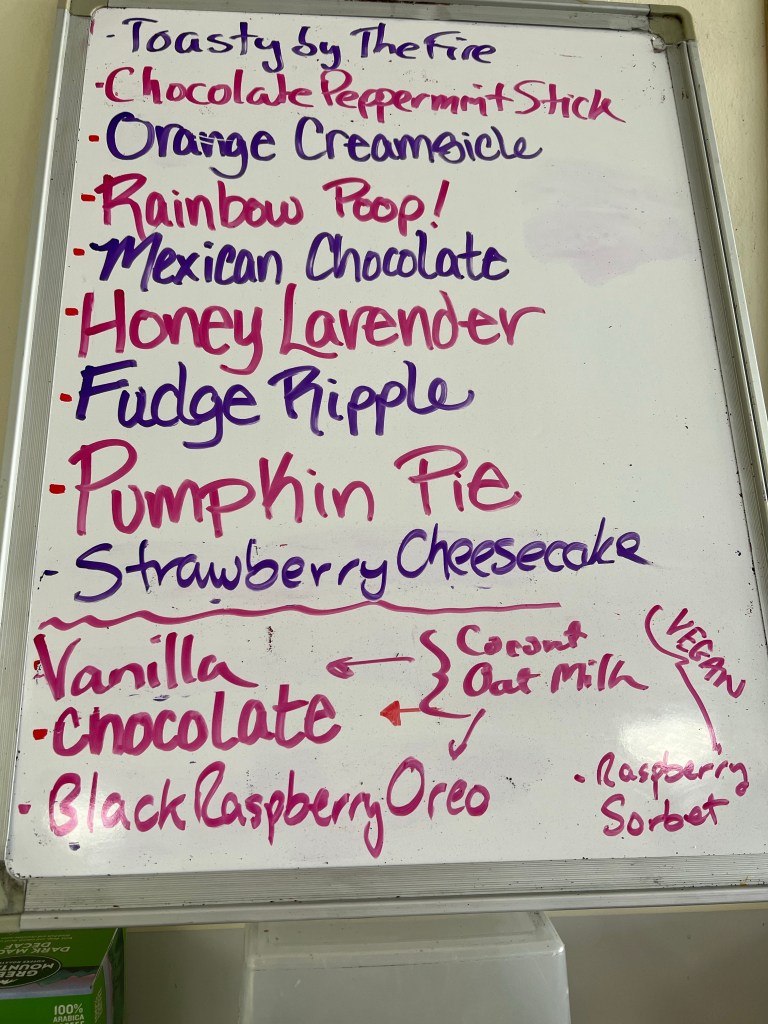 · Toasty by The Fire
· Chocolate Peppermint Stick
· Orange Creamsicle
· Rainbow Poop!
· Mexican Chocolate
· Honey Lavender
· Fudge Ripple
· Pumpkin Pie
- Strawberry Cheesecake
· Vanilla
· Chocolate
· Black Raspberry Oreo
Coconut
Oat Milk
VEGAN
· Raspberry
Sorbet
DECAF
GREE
MOUNT
100%
ARABICA